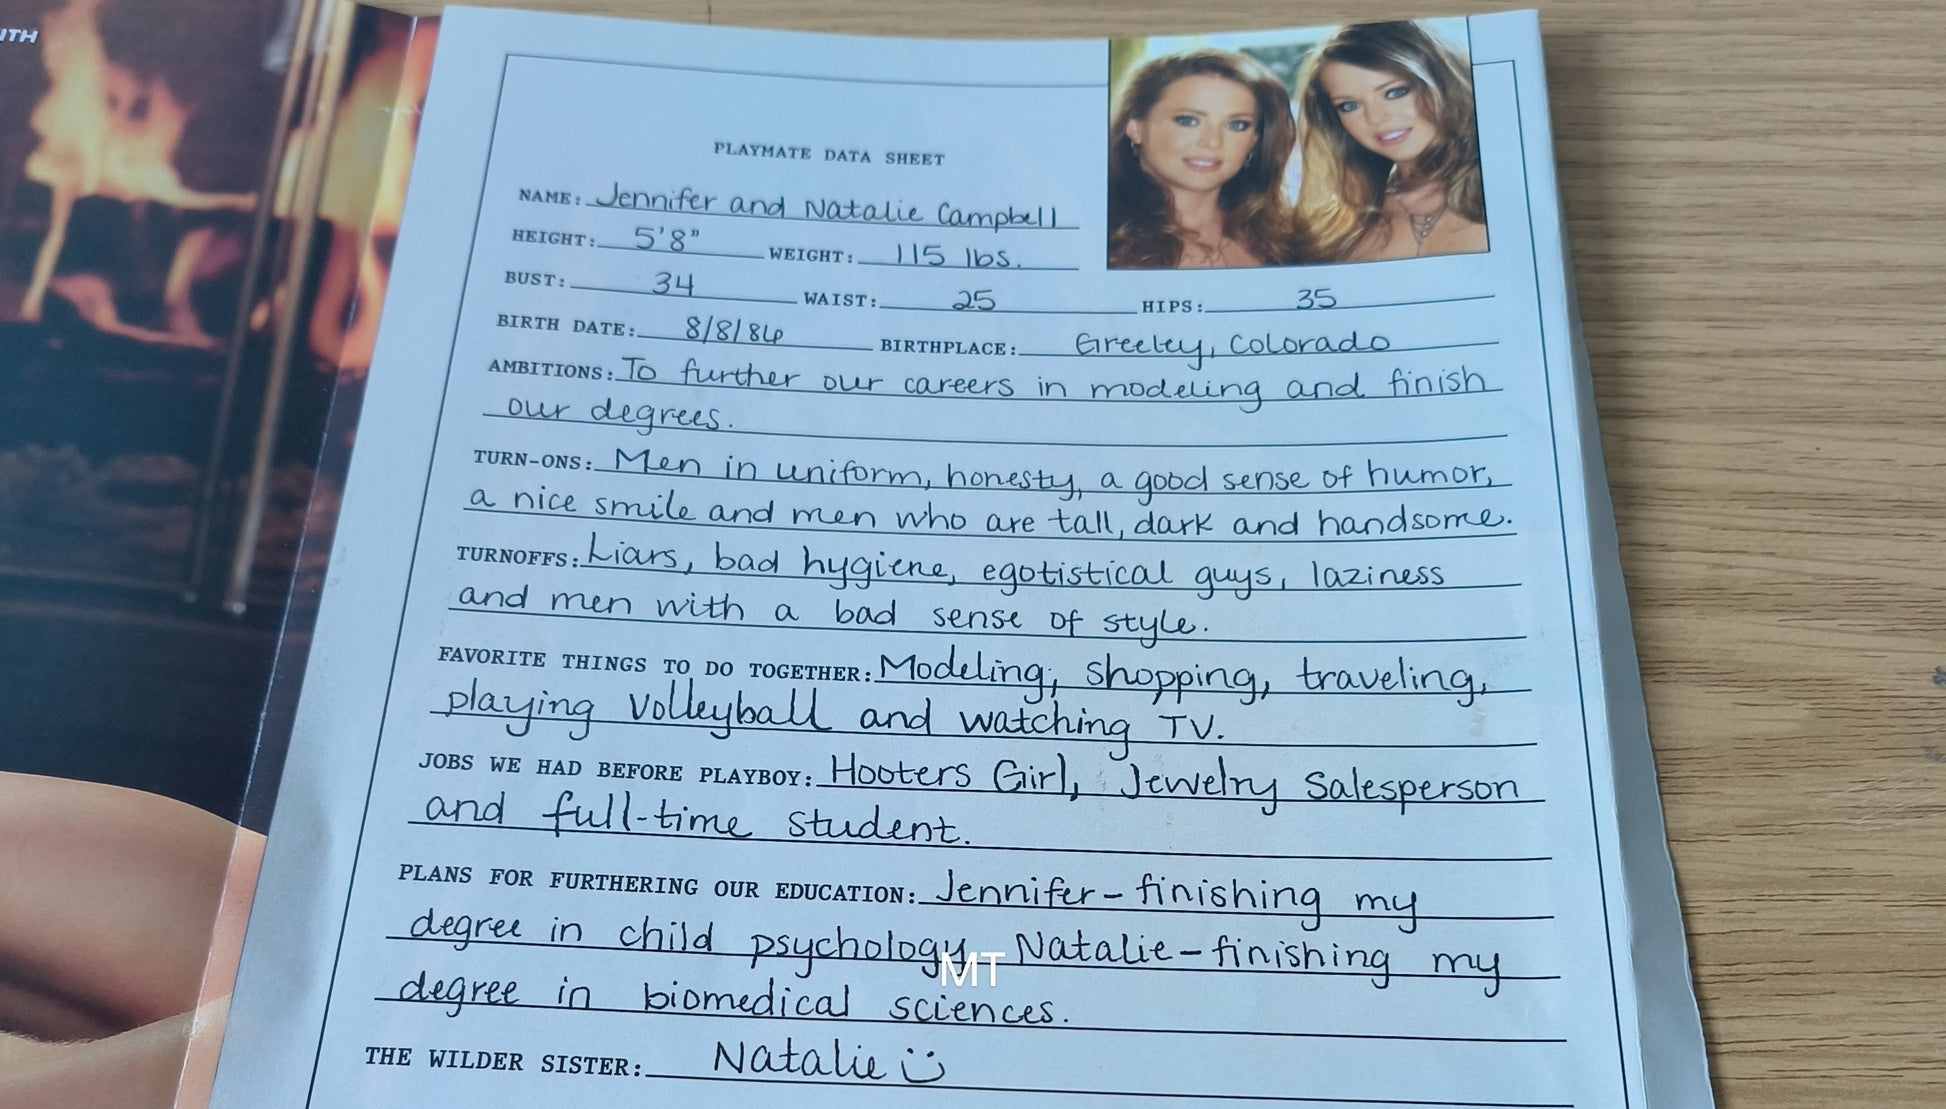 ITH
PLAYMATE DATA SHEET
NAME: Jennifer and Natalie Campbell
HEIGHT: 5'8" WEIGHT: 115 lbs.
BUST: 34 WAIST: 25 HIPS: 35
BIRTH DATE: 8/8/86 BIRTHPLACE: Greeley, Colorado
AMBITIONS: To further our careers in modeling and finish
our degrees.
TURN-ONS: Men in uniform, honesty, a good sense of humor,
a nice smile and men who are tall, dark and handsome.
TURNOFFS: Liars, bad hygiene, egotistical guys, laziness
and men with a bad sense of style.
FAVORITE THINGS TO DO TOGETHER: Modeling, shopping, traveling,
playing volleyball and watching TV.
JOBS WE HAD BEFORE PLAYBOY: Hooters Girl, Jewelry Salesperson
and full-time student.
PLANS FOR FURTHERING OUR EDUCATION: Jennifer - finishing my
degree in child psychology Natalie - finishing my
MT
degree in biomedical sciences.
THE WILDER SISTER: Natalie